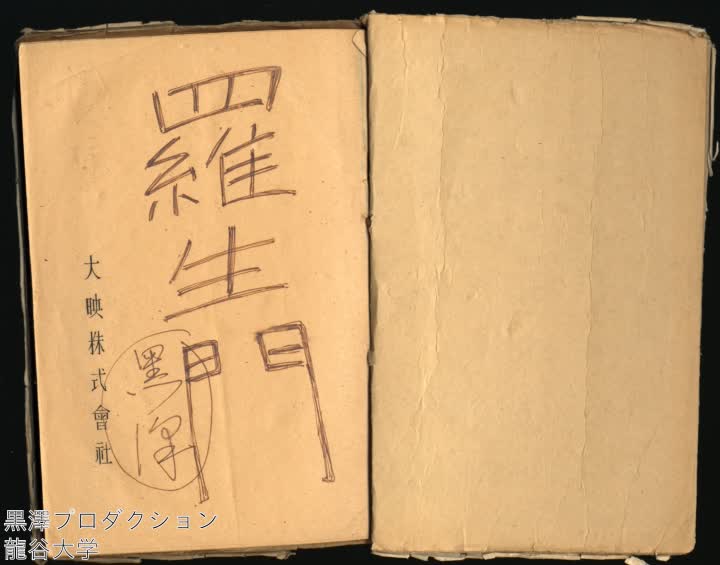 羅生門
大映株式會社
黒澤
黒澤プロダクション
龍谷大学